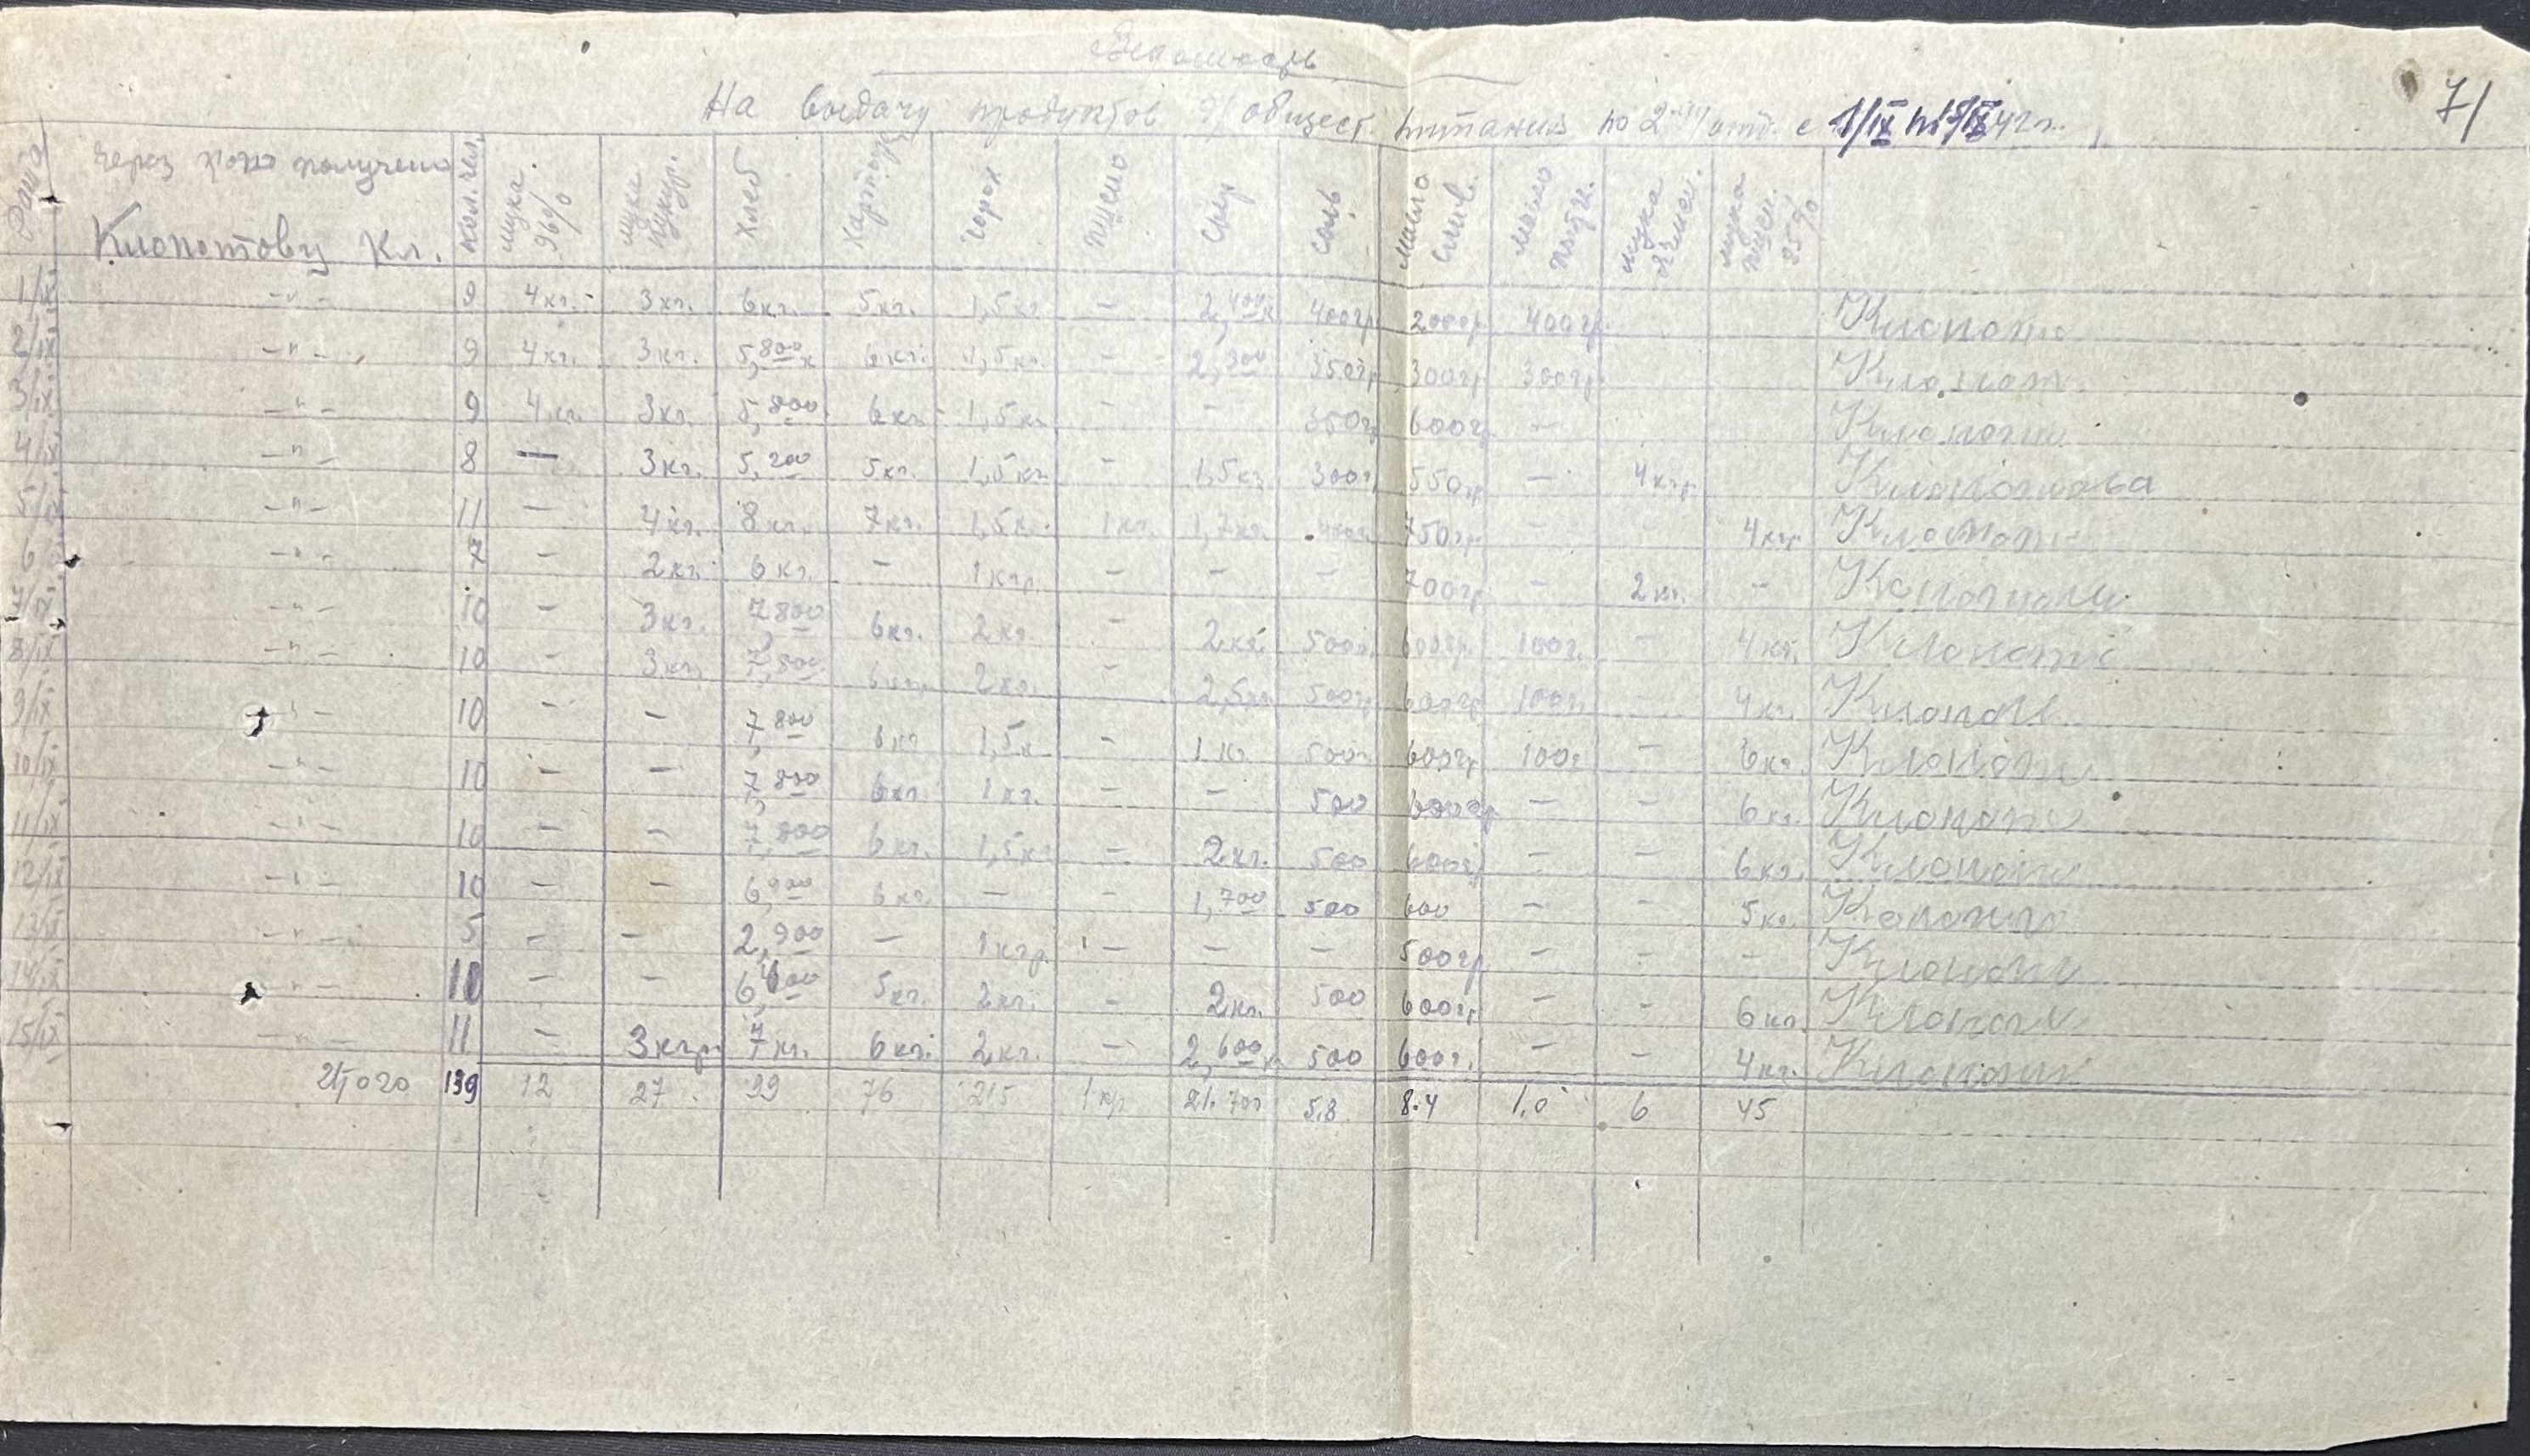 Ведомость
71
На выдачу продуктов д/ общест. питания по 2 отд. с 1/IX по 15/IX 42 г.
Дата Через кого получено кол. чел. мука 96% мука кукур. хлеб картоф. горох пшено сыр соль масло слив. масло мука ячмен. мука пшен. 85%
Клопотову Кл.
1/IX -"- 9 4 кг. 3 кг. 6 кг. 5 кг. 1,5 кг - 2,400 400 гр 200 гр 400 гр. Клопото
2/IX -"- 9 4 кг. 3 кг. 5,800 6 кг. 1,5 кг. - 2,300 350 гр 300 гр 300 гр.
3/IX -"- 9 4 кг. 3 кг. 5,800 6 кг. 1,5 кг - - 350 гр 600 гр -
4/IX -"- 8 - 3 кг. 5,200 5 кг. 1,5 кг - 1,5 кг 300 гр 550 гр - 4 кгр Клопотова
5/IX -"- 11 - 4 кг. 8 кг. 7 кг. 1,5 к. 1 кг. 1,7 кг. 400 750 гр - - 4 кгр
6 -"- 7 - 2 кг. 6 кг. - 1 кгр. - - - 700 гр - 2 кг. -
7/IX -"- 10 - 3 кг. 7 800 6 кг. 2 кг. - 2 кг. 500 600 гр. 100 г. - 4 кг.
8/IX -"- 10 - 3 кг. 7,800 6 кг. 2 кг. - 2,5 кг 500 гр 600 гр 100 г - 4 кг.
9/IX -"- 10 - - 7,800 6 кг 1,5 к - 1 к. 500 600 гр 100 г - 6 кг.
10/IX -"- 10 - - 7,800 6 кг. 1 кг. - - 500 600 гр - - 6 кг.
11/IX -"- 10 - - 7,800 6 кг. 1,5 кг - 2 кг. 500 600 г - - 6 кг.
12/IX -"- 10 - - 6,900 6 кг. - - 1,700 500 600 - - 5 кг.
13/IX -"- 5 - - 2,900 - 1 кгр. - - - 500 гр - - -
14/IX -"- 11 - - 5 кг. 2 кг. - 2 кг. 500 600 гр - - 6 кг.
15/IX -"- 11 - 3 кгр 7 кг. 6 кг. 2 кг. - 2,600 500 600 г. - - 4 кг.
Итого 139 12 27 99 76 215 1 кг 21.700 5,8 8.4 1,0 6 45